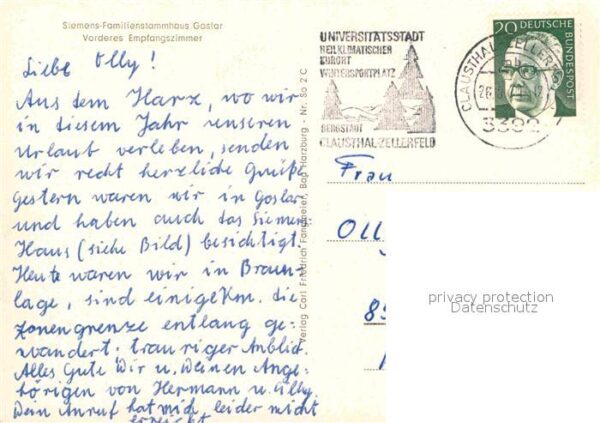 Siemens-Familienstammhaus Goslar
Vorderes Empfangszimmer
Liebe Olly!
Aus dem Harz, wo wir
in diesem Jahr unseren
Urlaub verleben, senden
wir recht herzliche Grüße
Gestern waren wir in Goslar
und haben auch das Siemens
Haus (siehe Bild) besichtigt.
Heute waren wir in Braun-
lage, sind einige Km. die
Zonengrenze entlang ge-
wandert. trauriger Anblick
Alles Gute Dir u. Deinen Ange-
hörigen von Hermann u. Cilly.
Dein Anruf hat mich leider nicht
erreicht
Verlag Carl Friedrich Fangmeier, Bad Harzburg - Nr. So 2 C
UNIVERSITÄTSSTADT
HEILKLIMATISCHER
KURORT
WINTERSPORTPLATZ
BERGSTADT
CLAUSTHAL-ZELLERFELD
CLAUSTHAL-ZELLERF
3392
20 DEUTSCHE
BUNDESPOST
Frau
Oll
85
privacy protection
Datenschutz